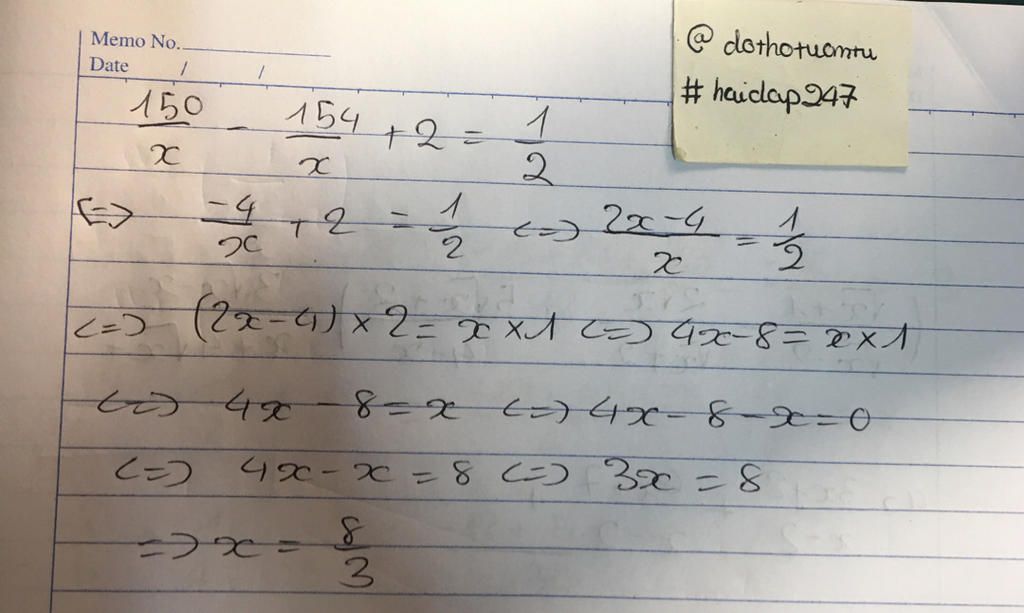 Memo No.
Date / /
@ dothotuantu
# haidap247
150/x - 154/x + 2 = 1/2
<=> -4/x + 2 = 1/2 <=> 2x-4/x = 1/2
<=> (2x-4) × 2 = x × 1 <=> 4x-8 = x × 1
<=> 4x - 8 = x <=> 4x - 8 - x = 0
<=> 4x - x = 8 <=> 3x = 8
=> x = 8/3